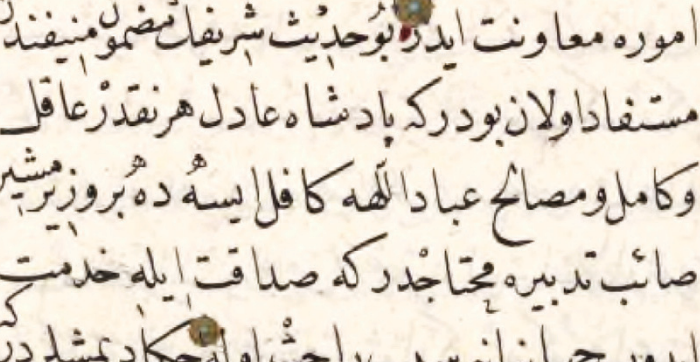 اموره معاونت ایدر بو حدیث شریفك مضمون منیفندن
مستفاد اولان بودركه پادشاه عادل هر نقدر عاقل
وكامل ومصالح عباد اللهه كافل ایسه ده بر وزیر مشیر
صائب تدبیره محتاجدركه صداقت ایله خدمت